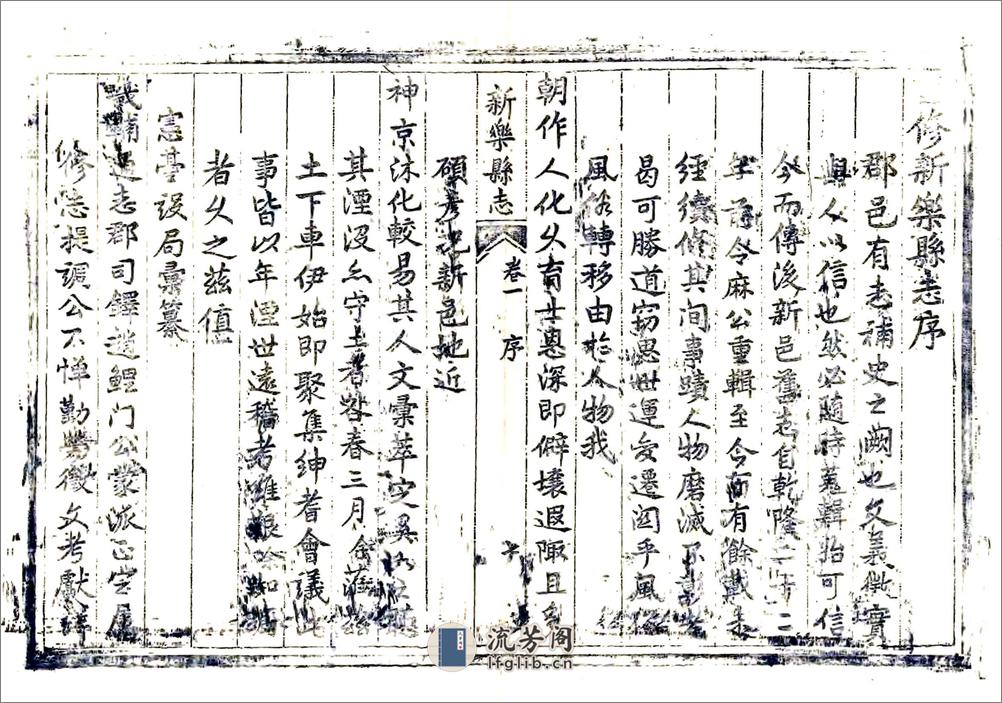 修新樂縣志序
郡邑有志補史之闕也文義徵實
與人以信也然必隨時蒐輯始可信
今而傳後新邑舊志自乾隆二十二
年前令麻公重輯至今百有餘載未
經續修其間事蹟人物磨滅不彰者
曷可勝道竊思世運變遷因乎風俗
風俗轉移由於人物我
朝作人化久育士恩深即僻壤遐陬且多
新樂縣志 卷一 序
碩彥況新邑地近
神京沐化較易其人文彙萃
其湮没亦守土者咎春三月余蒞
土下車伊始即聚集紳耆會議此
事皆以年湮世遠稽考維艱
者久之茲值
憲臺設局彙纂
畿輔通志郡司鐸趙鯉門公蒙派
修志提調公不憚勤勞徵文考獻
流芳阁
lfglib.cn